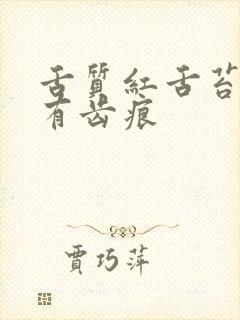 舌質紅舌苔
有齿痕
賈巧萍